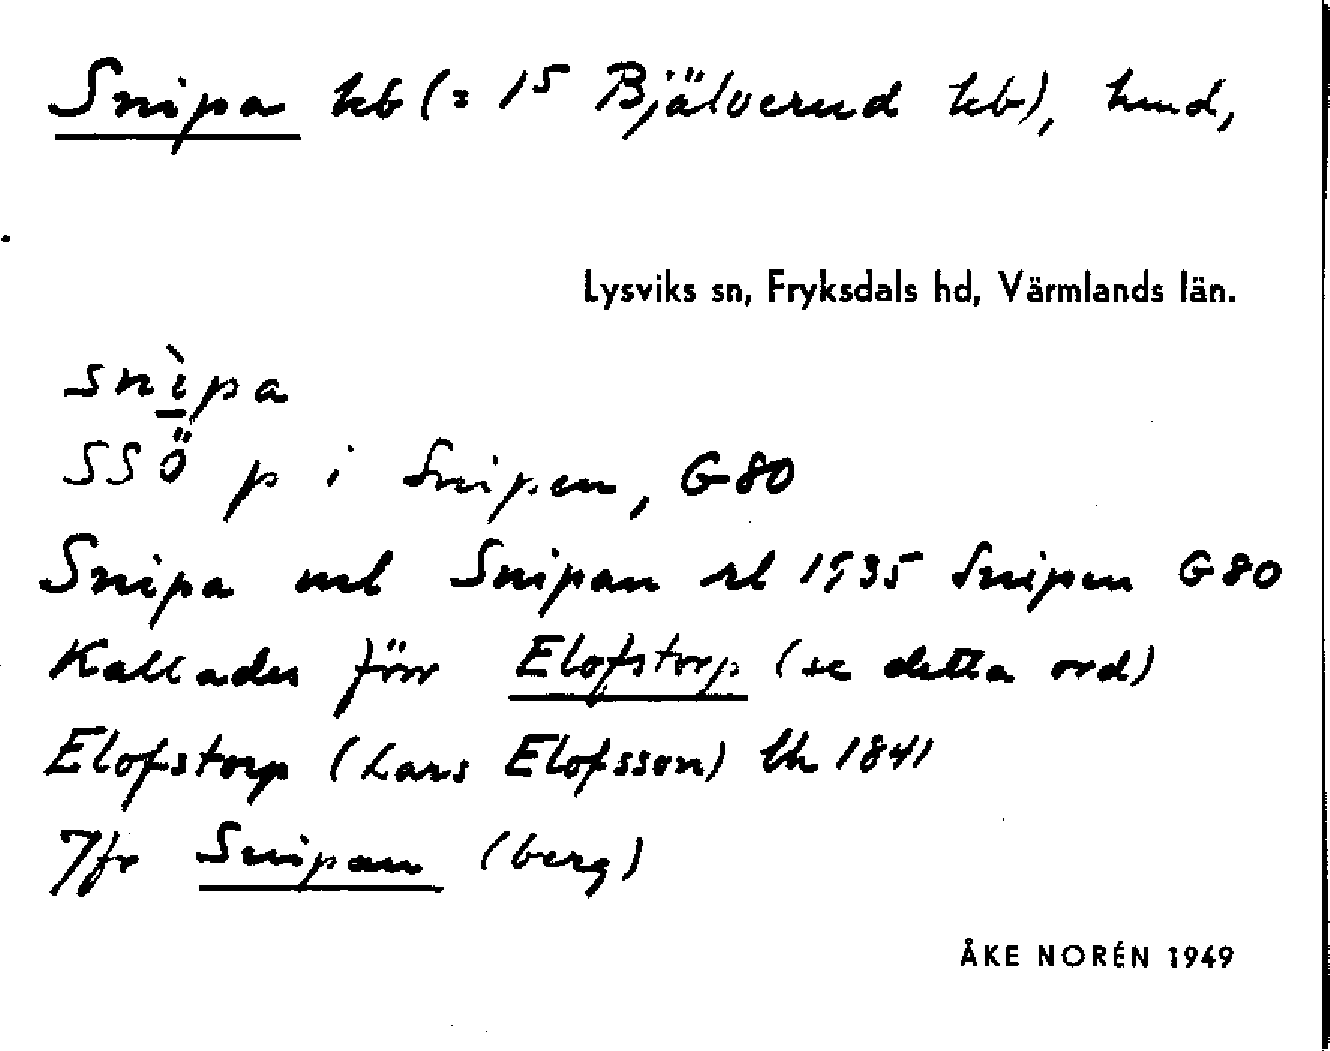 Snipa hb (= 15 Bjälverud hb), hmd,
Lysviks sn, Fryksdals hd, Värmlands län.
snìpa
SSÖ p i Snipen, G80
Snipa vel Snipan rl 1935 Snipen G80
Kallades förr Elofstorp (se detta ord)
Elofstorp (Lars Elofsson) lh 1841
Jfr Snipan (berg)
ÅKE NORÉN 1949